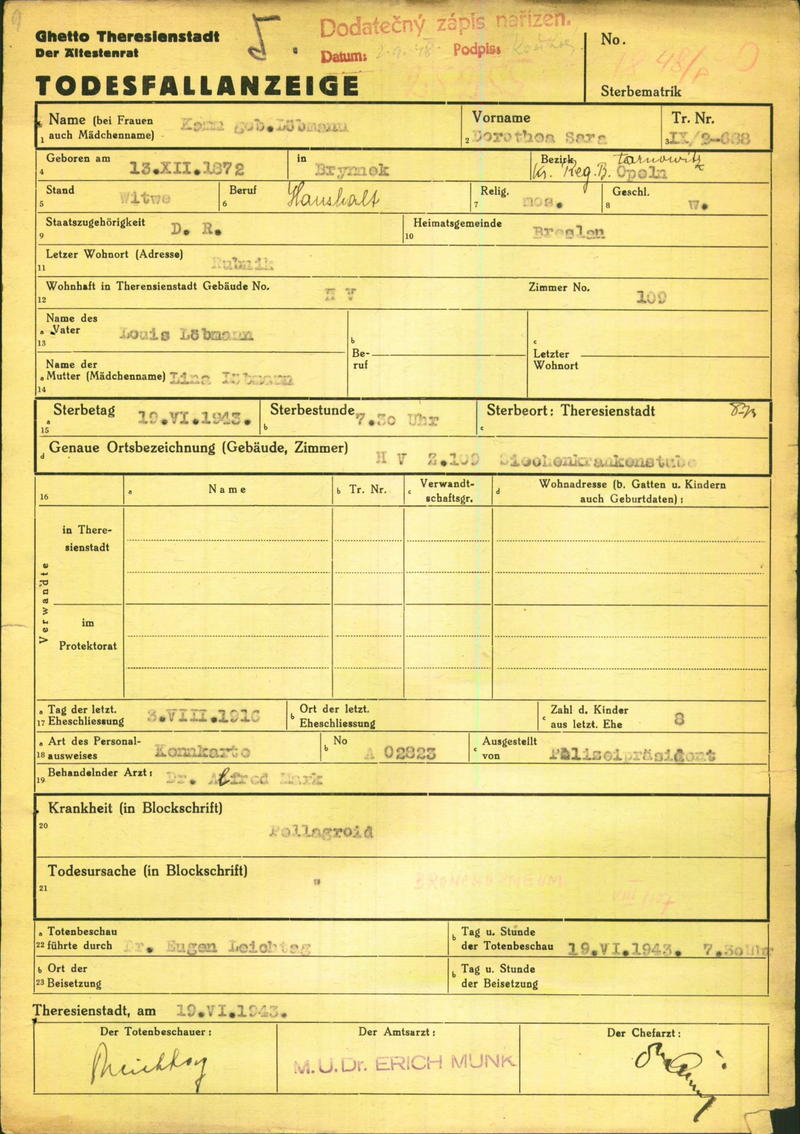 Ghetto Theresienstadt
Der Ältestenrat
TODESFALLANZEIGE
Dodatečný zápis nařízen.
Datum: Podpis:
No.
Sterbematrik
Name (bei Frauen auch Mädchenname) gob.Löbmann
1
Vorname Dorothea Sara
2
Tr. Nr. IX/2-638
3
Geboren am 13.XII.1872
4
in Brymek
Bezirk Tarnowitz
Kr. Reg.B. Opeln
Stand Witwe
5
Beruf Haushalt
6
Relig. mos.
7
Geschl. w.
8
Staatszugehörigkeit D. R.
9
Heimatsgemeinde Breslau
10
Letzer Wohnort (Adresse)
11
Wohnhaft in Theresienstadt Gebäude No. H V
12
Zimmer No. 109
Name des
a Vater Louis Löbmann
13
Name der
a Mutter (Mädchenname) Lina
14
b
Be-
ruf
c
Letzter
Wohnort
Sterbetag 19.VI.1943.
a
15
Sterbestunde 7.30 Uhr
b
Sterbeort: Theresienstadt
c
d Genaue Ortsbezeichnung (Gebäude, Zimmer) H V Z.109 Siechenkrankenstube
16
a Name
b Tr. Nr.
c Verwandt-
schaftsgr.
d Wohnadresse (b. Gatten u. Kindern
auch Geburtdaten) :
Verwandte
in There-
sienstadt
im
Protektorat
a Tag der letzt.
17 Eheschliessung 3.VIII.1916
b Ort der letzt.
Eheschliessung
c Zahl d. Kinder
aus letzt. Ehe 8
a Art des Personal-
18 ausweises Kennkarte
b No A 02823
c Ausgestellt
von Pälizeipräsident
Behandelnder Arzt: Dr. Alfred Mark
19
Krankheit (in Blockschrift)
20
Pellagroid
Todesursache (in Blockschrift)
21
"
a Totenbeschau
22 führte durch Dr. Eugen Leichtag
b Tag u. Stunde
der Totenbeschau 19.VI.1943. 7.30Uhr
b Ort der
23 Beisetzung
b Tag u. Stunde
der Beisetzung
Theresienstadt, am 19.VI.1943.
Der Totenbeschauer :
Der Amtsarzt :
Der Chefarzt :
M.U.Dr. ERICH MUNK